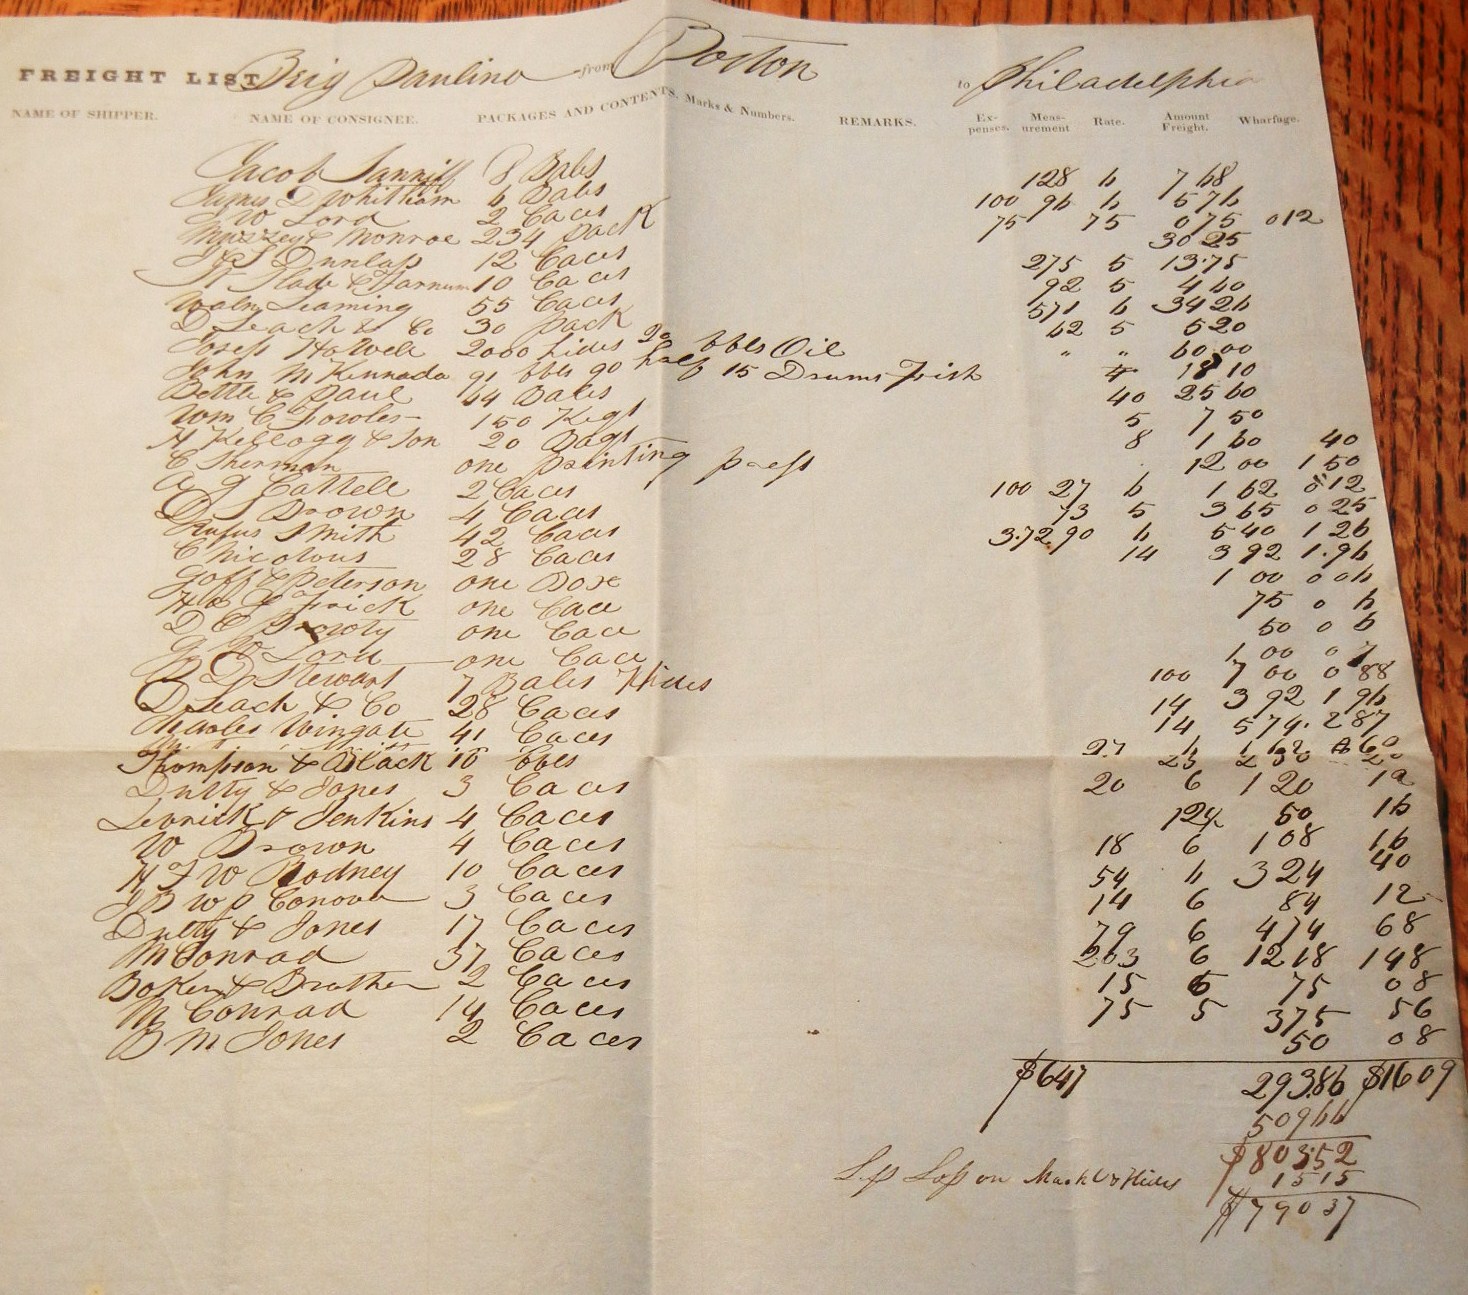 FREIGHT LIST Brig Paulina from Boston to Philadelphia
NAME OF SHIPPER. NAME OF CONSIGNEE. PACKAGES AND CONTENTS. Marks & Numbers. REMARKS. Ex-penses. Meas-urement Rate. Amount Freight. Wharfage.
Jacob 8 Bales 128 6 7 68
James D Whitham 6 Bales 100 96 6 5 76
J W Lord 2 Caces 75 75 0 75 0 12
Mussey & Monroe 234 pack 30 25
J & S Dunlap 12 Caces 275 5 13.75
10 Caces 92 5 4 60
Waln Leaming 55 Caces 571 6 34 26
D Leach & Co 30 pack 62 5 5 20
Joseph Howell 2000 hides 20 bbls Oil " " 60.00
John McKennada 91 bbls 90 half 15 Drums Fish 18 10
Bettle & Paul 64 Bales 40 25 60
Wm C Fowler 150 Kegs 5 7 50
H Kellogg & Son 20 Bags 8 1 60 40
C Sherman one printing press 12 00 1 50
A G Cattell 2 Caces 100 27 6 1 62 0 12
D S Brown 4 Caces 73 5 3 65 0 25
Rufus Smith 42 Caces 3.72 90 6 5 40 1 26
C Nicolous 28 Caces 14 3 92 1.96
Goff & Peterson one Boxe 1 00 0 06
H & J Frick one Cace 75 0 6
D C Prouty one Cace 50 0 6
G W Lord one Cace 1 00 0 7
D Stewart 7 Bales Hides 100 7 00 0 88
D Leach & Co 28 Caces 14 3 92 1 96
Charles Wingate 41 Caces 14 5 74. 2 87
Thompson & Black 10 bbls 23 2 30 20
Dutty & Jones 3 Caces 20 6 1 20 12
& Jenkins 4 Caces 12½ 50 16
W Brown 4 Caces 18 6 1 08 16
H F W Rodney 10 Caces 54 6 3 24 40
J B W P Conover 3 Caces 14 6 84 12
Dutty & Jones 17 Caces 79 6 4 74 68
M Conrad 37 Caces 203 6 12 18 1 48
Baker & Brother 2 Caces 15 5 75 0 8
M Conrad 14 Caces 75 5 3 75 56
B M Jones 2 Caces 50 0 8
$647 293.86 $16 09
509 66
$803.52
on Mack & Hides 13 15
$790 37